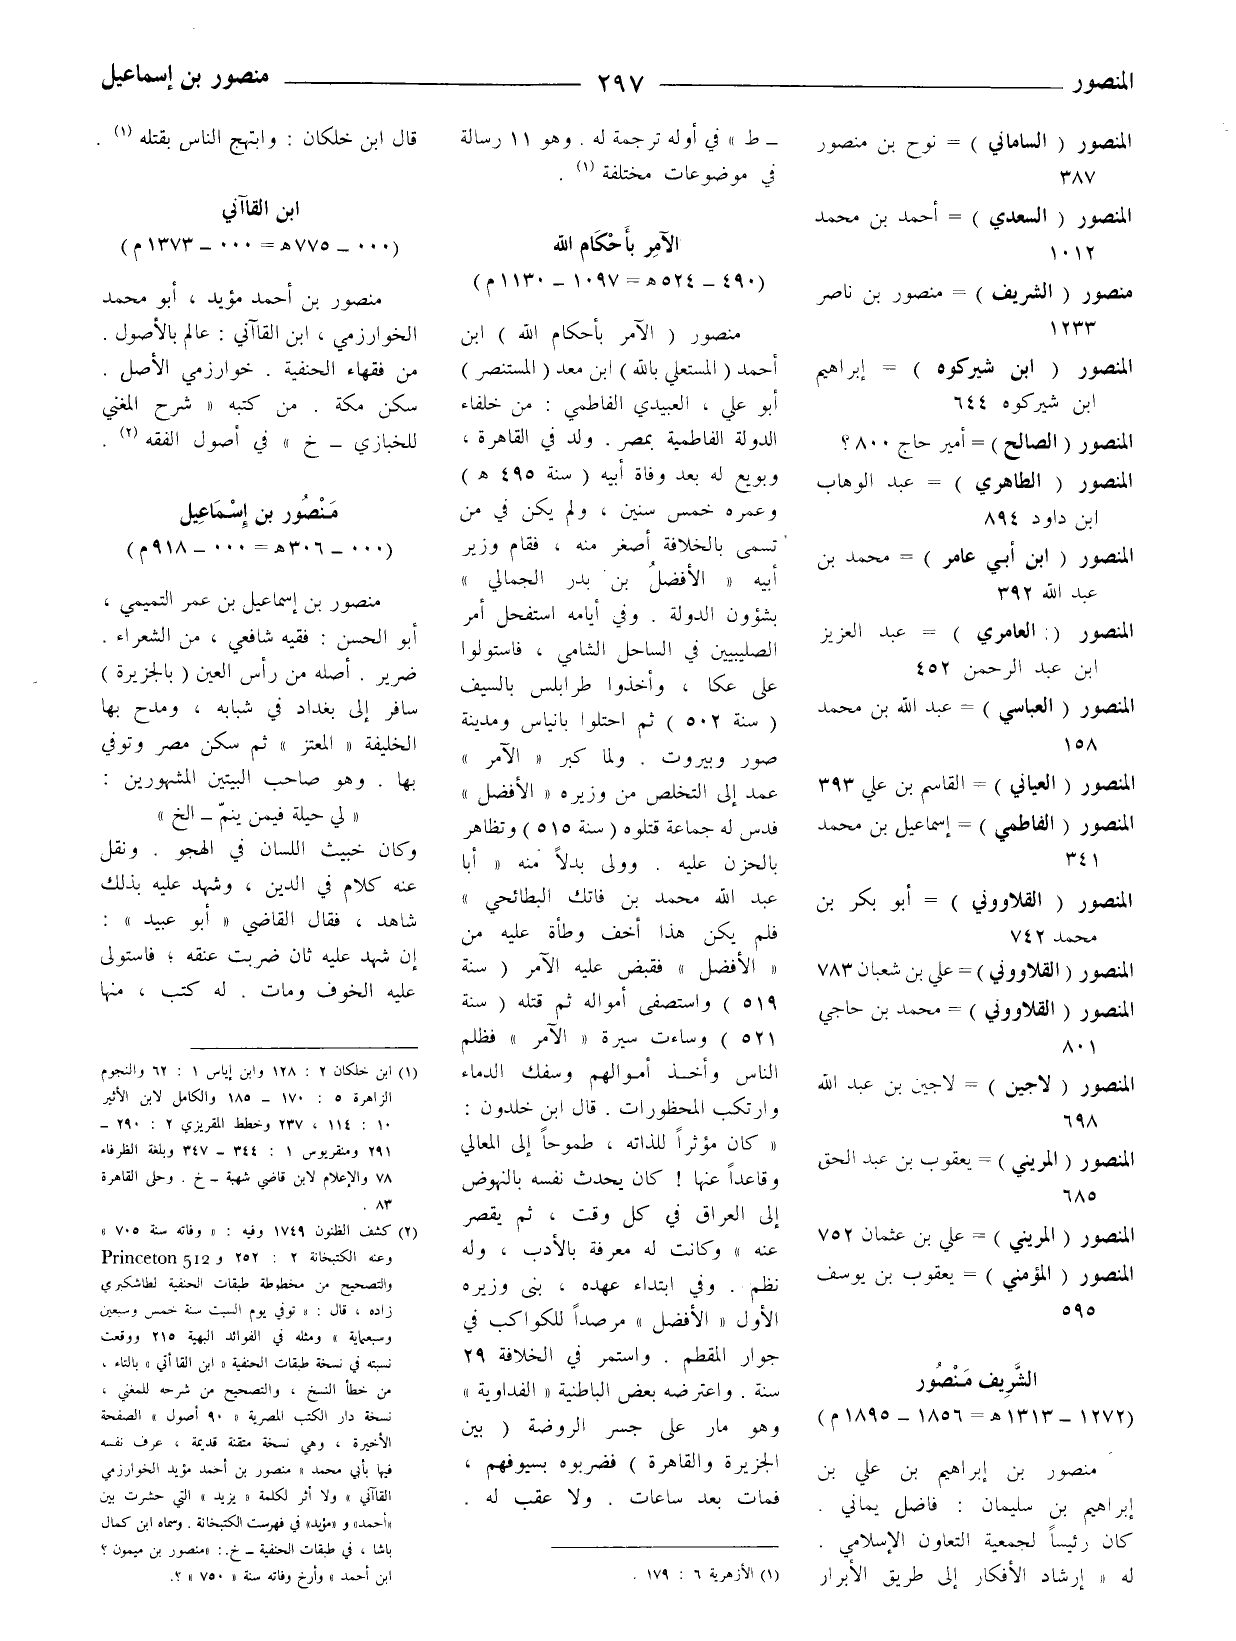 المنصور ــــ ٢٩٧ ــــ منصور بن إسماعيل
المنصور ( الساماني ) = نوح بن منصور
٣٨٧
المنصور ( السعدي ) = أحمد بن محمد
١٠١٢
منصور ( الشريف ) = منصور بن ناصر
١٢٣٣
المنصور ( ابن شيركوه ) = إبراهيم
ابن شيركوه ٦٤٤
المنصور ( الصالح ) = أمير حاج ٨٠٠ ؟
المنصور ( الطاهري ) = عبد الوهاب
ابن داود ٨٩٤
المنصور ( ابن أبي عامر ) = محمد بن
عبد الله ٣٩٢
المنصور ( العامري ) = عبد العزيز
ابن عبد الرحمن ٤٥٢
المنصور ( العباسي ) = عبد الله بن محمد
١٥٨
المنصور ( العياني ) = القاسم بن علي ٣٩٣
المنصور ( الفاطمي ) = إسماعيل بن محمد
٣٤١
المنصور ( القلاووني ) = أبو بكر بن
محمد ٧٤٢
المنصور ( القلاووني ) = علي بن شعبان ٧٨٣
المنصور ( القلاووني ) = محمد بن حاجي
٨٠١
المنصور ( لاجين ) = لاجين بن عبد الله
٦٩٨
المنصور ( المريني ) = يعقوب بن عبد الحق
٦٨٥
المنصور ( المريني ) = علي بن عثمان ٧٥٢
المنصور ( المؤمني ) = يعقوب بن يوسف
٥٩٥
الشَّريف مَنْصُور
(١٢٧٢ ــ ١٣١٣ هـ = ١٨٥٦ ــ ١٨٩٥ م)
منصور بن إبراهيم بن علي بن
إبراهيم بن سليمان : فاضل يماني .
كان رئيساً لجمعية التعاون الإسلامي .
له « إرشاد الأفكار إلى طريق الأبرار
ــ ط » في أوله ترجمة له . وهو ١١ رسالة
في موضوعات مختلفة (١) .
الآمِر بأَحْكَام الله
(٤٩٠ ــ ٥٢٤ هـ = ١٠٩٧ ــ ١١٣٠ م)
منصور ( الآمر بأحكام الله ) ابن
أحمد ( المستعلي بالله ) ابن معد ( المستنصر )
أبو علي ، العبيدي الفاطمي : من خلفاء
الدولة الفاطمية بمصر . ولد في القاهرة ،
وبويع له بعد وفاة أبيه ( سنة ٤٩٥ هـ )
وعمره خمس سنين ، ولم يكن في من
تسمى بالخلافة أصغر منه ، فقام وزير
أبيه « الأفضلُ بن بدر الجمالي »
بشؤون الدولة . وفي أيامه استفحل أمر
الصليبيين في الساحل الشامي ، فاستولوا
على عكا ، وأخذوا طرابلس بالسيف
( سنة ٥٠٢ ) ثم احتلوا بانياس ومدينة
صور وبيروت . ولما كبر « الآمر »
عمد إلى التخلص من وزيره « الأفضل »
فدس له جماعة قتلوه ( سنة ٥١٥ ) وتظاهر
بالحزن عليه . وولى بدلاً منه « أبا
عبد الله محمد بن فاتك البطائحي »
فلم يكن هذا أخف وطأة عليه من
« الأفضل » فقبض عليه الآمر ( سنة
٥١٩ ) واستصفى أمواله ثم قتله ( سنة
٥٢١ ) وساءت سيرة « الآمر » فظلم
الناس وأخذ أموالهم وسفك الدماء
وارتكب المحظورات . قال ابن خلدون :
« كان مؤثراً للذاته ، طموحاً إلى المعالي
وقاعداً عنها ! كان يحدث نفسه بالنهوض
إلى العراق في كل وقت ، ثم يقصر
عنه » وكانت له معرفة بالأدب ، وله
نظم . وفي ابتداء عهده ، بنى وزيره
الأول « الأفضل » مرصداً للكواكب في
جوار المقطم . واستمر في الخلافة ٢٩
سنة . واعترضه بعض الباطنية « الفداوية »
وهو مار على جسر الروضة ( بين
الجزيرة والقاهرة ) فضربوه بسيوفهم ،
فمات بعد ساعات . ولا عقب له .
(١) الأزهرية ٦ : ١٧٩ .
قال ابن خلكان : وابتهج الناس بقتله (١) .
ابن القاآني
(٠٠٠ ــ ٧٧٥ هـ = ٠٠٠ ــ ١٣٧٣ م)
منصور بن أحمد مؤيد ، أبو محمد
الخوارزمي ، ابن القاآني : عالم بالأصول .
من فقهاء الحنفية . خوارزمي الأصل .
سكن مكة . من كتبه « شرح المغني
للخبازي ــ خ » في أصول الفقه (٢) .
مَنْصُور بن إِسْمَاعِيل
(٠٠٠ ــ ٣٠٦ هـ = ٠٠٠ ــ ٩١٨ م)
منصور بن إسماعيل بن عمر التميمي ،
أبو الحسن : فقيه شافعي ، من الشعراء .
ضرير . أصله من رأس العين ( بالجزيرة )
سافر إلى بغداد في شبابه ، ومدح بها
الخليفة « المعتز » ثم سكن مصر وتوفي
بها . وهو صاحب البيتين المشهورين :
« لي حيلة فيمن ينمّ ــ الخ »
وكان خبيث اللسان في الهجو . ونقل
عنه كلام في الدين ، وشهد عليه بذلك
شاهد ، فقال القاضي « أبو عبيد » :
إن شهد عليه ثان ضربت عنقه ؛ فاستولى
عليه الخوف ومات . له كتب ، منها
(١) ابن خلكان ٢ : ١٢٨ وابن إياس ١ : ٦٢ والنجوم
الزاهرة ٥ : ١٧٠ ــ ١٨٥ والكامل لابن الأثير
١٠ : ١١٤ ، ٢٣٧ وخطط المقريزي ٢ : ٢٩٠ ــ
٢٩١ ومنقريوس ١ : ٣٤٤ ــ ٣٤٧ وبلغة الظرفاء
٧٨ والإعلام لابن قاضي شهبة ــ خ . وحلى القاهرة
٨٣ .
(٢) كشف الظنون ١٧٤٩ وفيه : « وفاته سنة ٧٠٥ »
وعنه الكتبخانة ٢ : ٢٥٢ و Princeton 512
والتصحيح من مخطوطة طبقات الحنفية لطاشكبري
زاده ، قال : « توفي يوم السبت سنة خمس وسبعين
وسبعماية » ومثله في الفوائد البهية ٢١٥ ووقعت
نسبته في نسخة طبقات الحنفية « ابن القاأتي » بالتاء ،
من خطأ النسخ ، والتصحيح من شرحه للمغني ،
نسخة دار الكتب المصرية « ٩٠ أصول » الصفحة
الأخيرة ، وهي نسخة متقنة قديمة ، عرف نفسه
فيها بأبي محمد « منصور بن أحمد مؤيد الخوارزمي
القاآني » ولا أثر لكلمة « يزيد » التي حشرت بين
«أحمد» و «مؤيد» في فهرست الكتبخانة . وسماه ابن كمال
باشا ، في طبقات الحنفية ــ خ.: «منصور بن ميمون ؟
ابن أحمد » وأرخ وفاته سنة « ٧٥٠ » ؟.